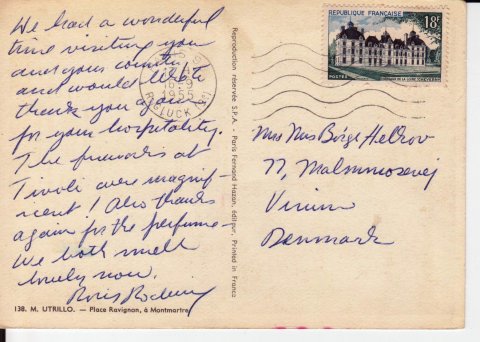 We had a wonderful
time visiting you
and your country
and would like to
thank you again
for your hospitality.
The fireworks at
Tivoli were magnif-
icent! Also thanks
again for the perfume -
We both smell
lovely now.
138. M. UTRILLO. — Place Ravignan, à Montmartre
Reproduction réservée S.P.A. - Paris Fernand Hazan, éditeur, Printed in France
RÉPUBLIQUE FRANÇAISE
18F
POSTES
1955
GLUCK
77, Malmmosevej
Virum
Denmark